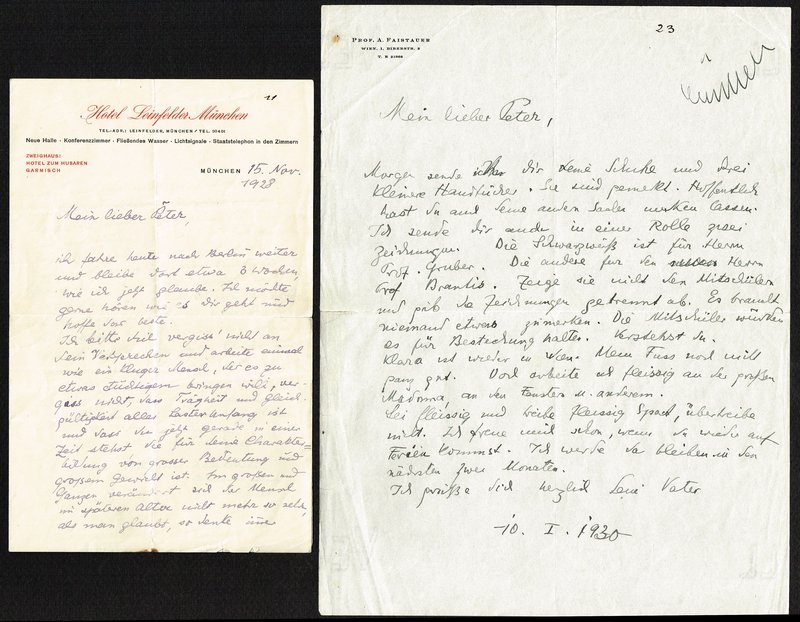 21
Hotel Leinfelder München
TEL.-ADR.: LEINFELDER, MÜNCHEN / TEL. 50401
Neue Halle · Konferenzzimmer · Fließendes Wasser · Lichtsignale · Staatstelephon in den Zimmern
ZWEIGHAUS:
HOTEL ZUM HUSAREN
GARMISCH
MÜNCHEN 15. Nov.
1928
Mein lieber Peter,
ich fahre heute nach Berlin weiter
und bleibe dort etwa 3 Wochen,
wie ich jetzt glaube. Ich möchte
gerne hören wie es dir geht und
hoffe das beste.
Ich bitte vergiss nicht an
Dein Versprechen und arbeite einmal
wie ein kluger Mensch, der es zu
etwas tüchtigem bringen will, ver-
gess nicht, dass Trägheit und Gleich-
gültigkeit alles Laster Anfang ist
und dass du jetzt gerade in einer
Zeit stehst die für deine Charakter-
bildung von grosser Bedeutung und
großem Gewicht ist. Im großen und
Ganzen verändert sich der Mensch
im späteren Alter nicht mehr so sehr,
als man glaubt, so denke
23
PROF. A. FAISTAUER
WIEN, I. BIBERSTR. 2
Mein lieber Peter,
Morgen sende ich dir deine Schuhe und drei
kleinere Handtücher. Sie sind gemerkt. Hoffentlich
hast du auch deine andern Sachen merken lassen.
Ich sende dir auch in einer Rolle zwei
Zeichnungen. Die Schwarzweiß ist für Herrn
Prof. Gruber. Die andere für den Herrn
Prof Brantis. Zeige sie nicht den Mitschülern
und gib die Zeichnungen getrennt ab. Es braucht
niemand etwas zumerken. Die Mitschüler würden
es für Bestechung halten. Verstehst du.
Klara ist wieder in Wien. Mein Fuss noch nicht
ganz gut. Doch arbeite ich fleissig an der großen
Madonna, an den Fenstern u. anderem.
Sei fleissig und treibe fleissig Sport, übertreibe
nicht. Ich freue mich schon, wenn du wieder auf
Ferien kommst. Ich werde da bleiben in den
nächsten zwei Monaten.
Ich grüße dich herzlich Dein Vater
10. I. 1930